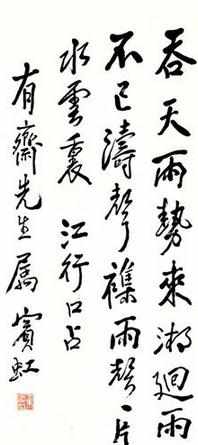 吞天雨勢來湘迴雨
不已濤聲襍雨聲一片
水雲裏 江行口占
有齋先生屬 賓虹